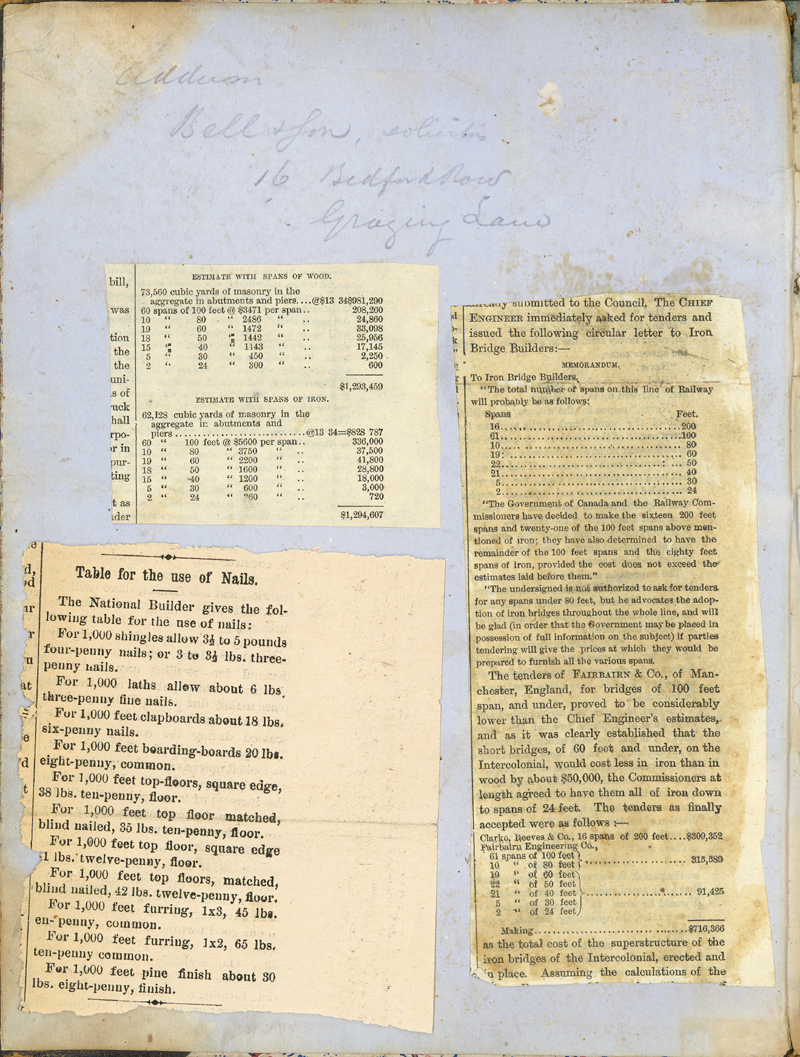 Address
Bell & Son, solicitors
16 Bedford Row
Grazing Lane
bill,
was
tion
the
the
uni-
s of
ruck
hall
rpo-
r in
pur-
ting
t as
ider
ESTIMATE WITH SPANS OF WOOD.
73,560 cubic yards of masonry in the
aggregate in abutments and piers....@$13 34$981,290
60 spans of 100 feet @ $3471 per span.. 208,260
10 “ 80 “ 2486 “ .. 24,860
19 “ 60 “ 1472 “ .. 33,098
18 “ 50 “ 1442 “ .. 25,956
15 “ 40 “ 1143 “ .. 17,145
5 “ 30 “ 450 “ .. 2,250
2 “ 24 “ 300 “ .. 600
$1,293,459
ESTIMATE WITH SPANS OF IRON.
62,128 cubic yards of masonry in the
aggregate in abutments and
piers...........................@13 34=$828 787
60 “ 100 feet @ $5600 per span.. 336,000
10 “ 80 “ 3750 “ .. 37,500
19 “ 60 “ 2200 “ .. 41,800
18 “ 50 “ 1600 “ .. 28,800
15 “ 40 “ 1200 “ .. 18,000
5 “ 30 “ 600 “ .. 3,000
2 “ 24 “ 360 “ .. 720
$1,294,607
Table for the use of Nails.
The National Builder gives the fol-
lowing table for the use of nails:
For 1,000 shingles allow 3½ to 5 pounds
four-penny nails; or 3 to 3½ lbs. three-
penny nails.
For 1,000 laths allow about 6 lbs
three-penny fine nails.
For 1,000 feet clapboards about 18 lbs.
six-penny nails.
For 1,000 feet boarding-boards 20 lbs.
eight-penny, common.
For 1,000 feet top-floors, square edge,
38 lbs. ten-penny, floor.
For 1,000 feet top floor matched,
blind nailed, 35 lbs. ten-penny, floor.
For 1,000 feet top floor, square edge
41 lbs. twelve-penny, floor.
For 1,000 feet top floors, matched,
blind nailed, 42 lbs. twelve-penny, floor.
For 1,000 feet furring, 1x3, 45 lbs.
en-penny, common.
For 1,000 feet furring, 1x2, 65 lbs.
ten-penny common.
For 1,000 feet pine finish about 30
lbs. eight-penny, finish.
already submitted to the Council, The CHIEF
ENGINEER immediately asked for tenders and
issued the following circular letter to Iron
Bridge Builders:—
MEMORANDUM,
To Iron Bridge Builders,
“The total number of spans on this line of Railway
will probably be as follows:
Spans Feet.
16.......................................200
61.......................................100
10....................................... 80
19....................................... 60
22....................................... 50
21....................................... 40
5....................................... 30
2....................................... 24
“The Government of Canada and the Railway Com-
missioners have decided to make the sixteen 200 feet
spans and twenty-one of the 100 feet spans above men-
tioned of iron; they have also determined to have the
remainder of the 100 feet spans and the eighty feet
spans of iron, provided the cost does not exceed the
estimates laid before them.”
“The undersigned is not authorized to ask for tenders
for any spans under 80 feet, but he advocates the adop-
tion of iron bridges throughout the whole line, and will
be glad (in order that the Government may be placed in
possession of full information on the subject) if parties
tendering will give the prices at which they would be
prepared to furnish all the various spans.
The tenders of FAIRBAIRN & Co., of Man-
chester, England, for bridges of 100 feet
span, and under, proved to be considerably
lower than the Chief Engineer's estimates,
and as it was clearly established that the
short bridges, of 60 feet and under, on the
Intercolonial, would cost less in iron than in
wood by about $50,000, the Commissioners at
length agreed to have them all of iron down
to spans of 24 feet. The tenders as finally
accepted were as follows :—
Clarke, Reeves & Co., 16 spans of 200 feet....$309,352
Fairbairn Engineering Co.,
61 spans of 100 feet
10 “ of 80 feet ..................... 315,589
19 “ of 60 feet
22 “ of 50 feet
21 “ of 40 feet ..................... 91,425
5 “ of 30 feet
2 “ of 24 feet
Making.............................$716,366
as the total cost of the superstructure of the
iron bridges of the Intercolonial, erected and
in place. Assuming the calculations of the